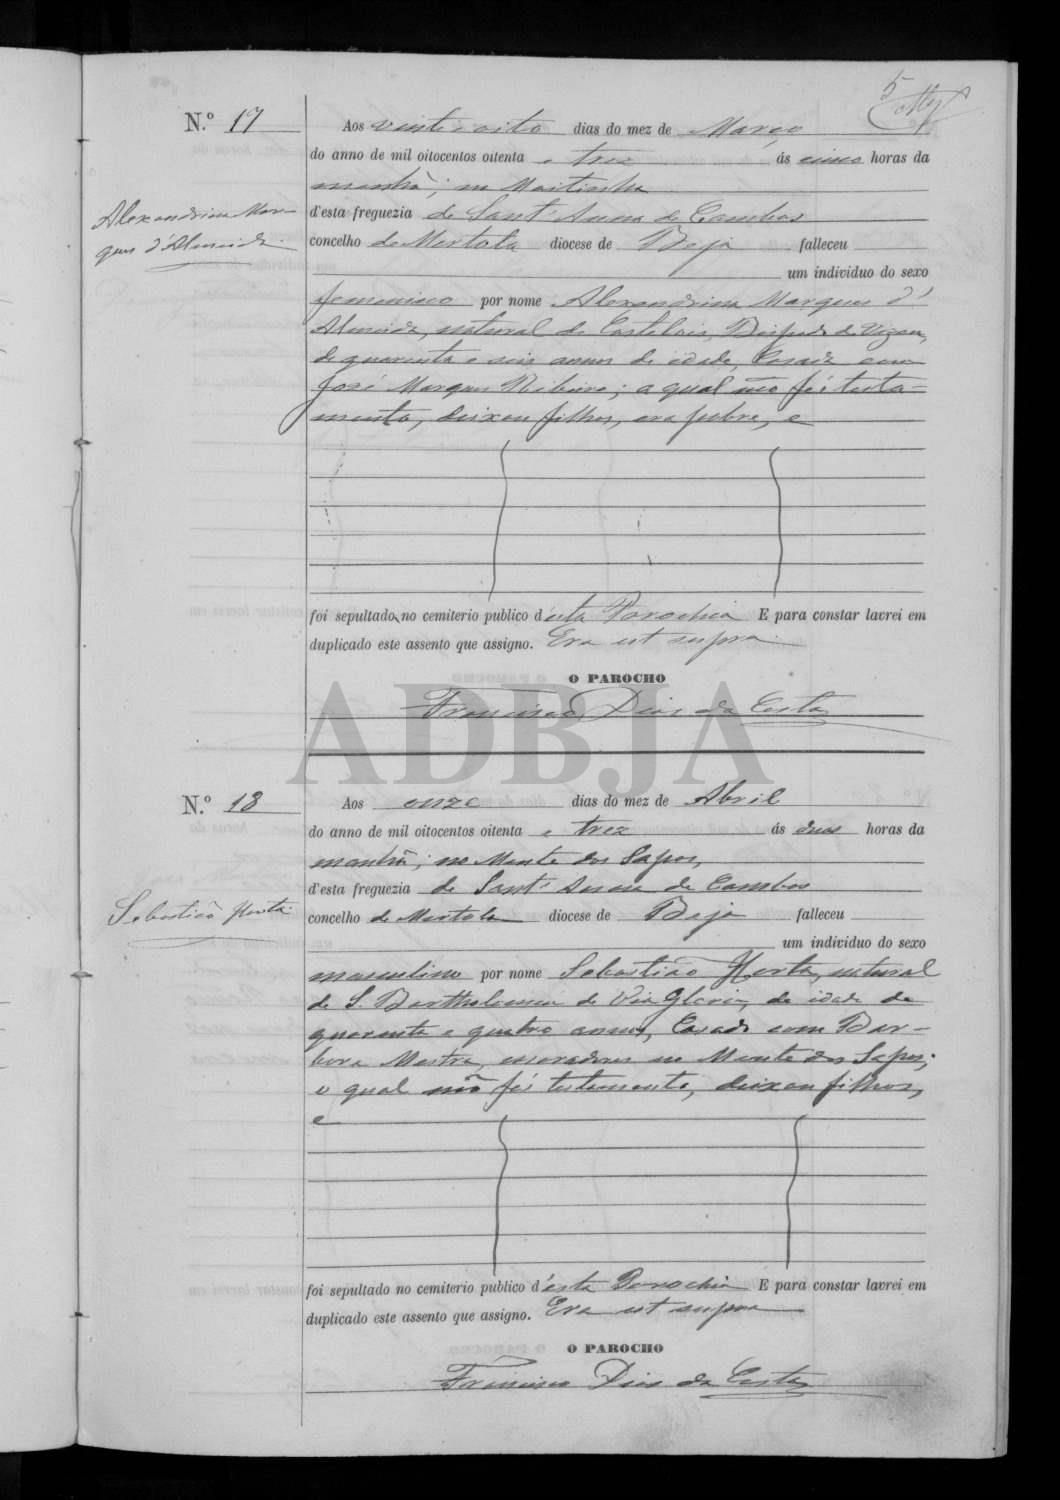 5
N.º 17
Aos vinte e oito dias do mez de Março
do anno de mil oitocentos oitenta e trez ás cinco horas da
manhã; na Martinha
Alexandrina Mar-
ques d'Almeida
d'esta freguezia de Sant'Anna de Cambas
concelho de Mertola diocese de Beja falleceu
um individuo do sexo
femenino por nome Alexandrina Marques d'
Almeida, natural de Castelões, Bispado de Vizeu,
de quarenta e seis annos de idade, Casada com
José Marques Ribeiro; a qual não fés testa-
mento, deixou filhos, era pobre, e
foi sepultada no cemiterio publico d'esta Parochia E para constar lavrei em
duplicado este assento que assigno. Era ut supra.
O PAROCHO
Francisco Dias da Costa
ADBJA
N.º 18
Aos onze dias do mez de Abril
do anno de mil oitocentos oitenta e trez ás duas horas da
manhã; no Monte dos Sapos,
d'esta freguezia de Sant'Anna de Cambas
Sebastião Horta
concelho de Mertola diocese de Beja falleceu
um individuo do sexo
masculino por nome Sebastião Horta, natural
de S. Bartholomeu de Via Gloria, de idade de
quarenta e quatro annos, Casado com Bar-
bora Mestra, moradores no Monte dos Sapos;
o qual não fés testamento, deixou filhos,
e
foi sepultado no cemiterio publico d'esta Parochia E para constar lavrei em
duplicado este assento que assigno. Era ut supra
O PAROCHO
Francisco Dias da Costa